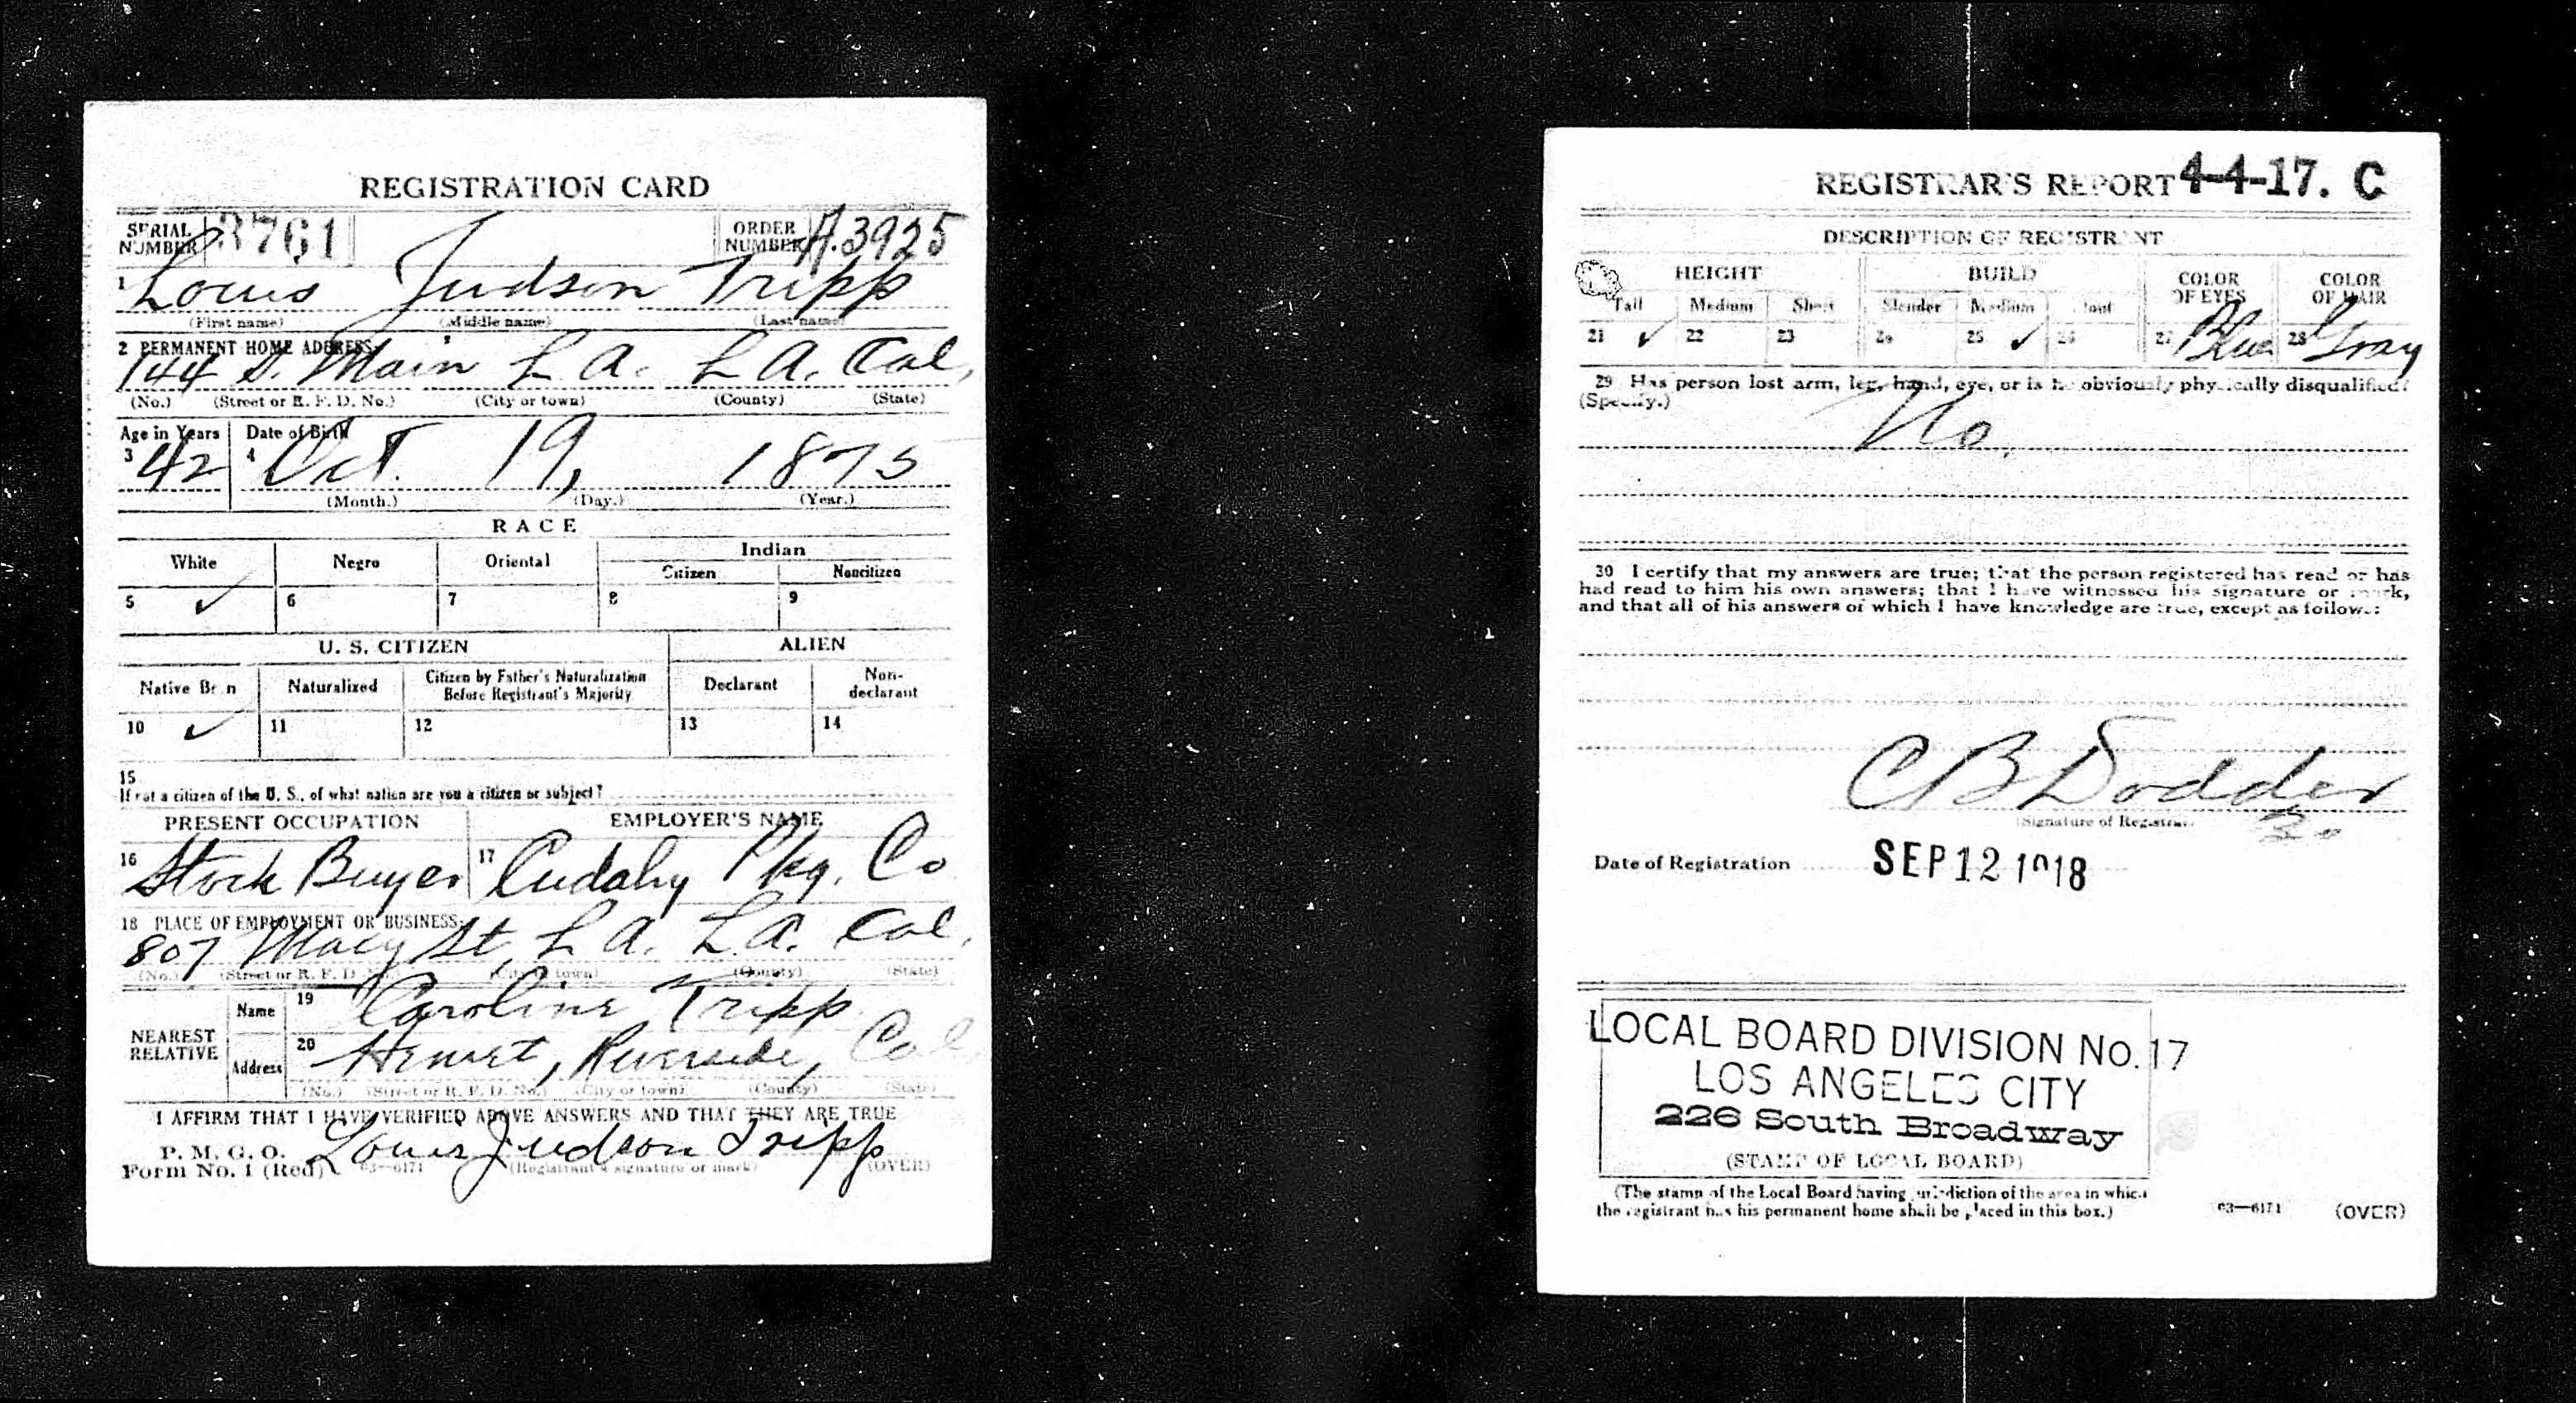 REGISTRATION CARD
SERIAL NUMBER 3761 ORDER NUMBER A3925
1 Louis Judson Tripp
(First name) (Middle name) (Last name)
2 PERMANENT HOME ADDRESS
144 S. Main L.A. L.A. Cal.
(No.) (Street or R. F. D. No.) (City or town) (County) (State)
Age in Years Date of Birth
3 42 4 Oct. 19, 1875
(Month.) (Day.) (Year.)
RACE
White Negro Oriental Indian
Citizen Noncitizen
5 ✓ 6 7 8 9
U. S. CITIZEN ALIEN
Native Born Naturalized Citizen by Father's Naturalization Before Registrant's Majority Declarant Non-declarant
10 ✓ 11 12 13 14
15
If not a citizen of the U. S., of what nation are you a citizen or subject?
PRESENT OCCUPATION EMPLOYER'S NAME
16 Stock Buyer 17 Cudahy Pkg. Co
18 PLACE OF EMPLOYMENT OR BUSINESS:
807 Macy St, L.A. L.A. Cal.
(No.) (Street or R. F. D. No.) (City or town) (County) (State)
NEAREST RELATIVE Name 19 Caroline Tripp
Address 20 Hemet, Riverside, Cal
(No.) (Street or R. F. D. No.) (City or town) (County) (State)
I AFFIRM THAT I HAVE VERIFIED ABOVE ANSWERS AND THAT THEY ARE TRUE
P. M. G. O.
Form No. 1 (Red) 03—6171 Louis Judson Tripp
(Registrant's signature or mark) (OVER)
REGISTRAR'S REPORT 4-4-17. C
DESCRIPTION OF REGISTRANT
HEIGHT BUILD COLOR OF EYES COLOR OF HAIR
Tall Medium Short Slender Medium Stout
21 ✓ 22 23 24 25 ✓ 26 27 Blue 28 Gray
29 Has person lost arm, leg, hand, eye, or is he obviously physically disqualified?
(Specify.)
No.
30 I certify that my answers are true; that the person registered has read or has
had read to him his own answers; that I have witnessed his signature or mark,
and that all of his answers of which I have knowledge are true, except as follows:
C B Dodder
(Signature of Registrar)
Date of Registration SEP 12 1918
LOCAL BOARD DIVISION No. 17
LOS ANGELES CITY
226 South Broadway
(STAMP OF LOCAL BOARD)
(The stamp of the Local Board having jurisdiction of the area in which
the registrant has his permanent home shall be placed in this box.)
03—6171 (OVER)